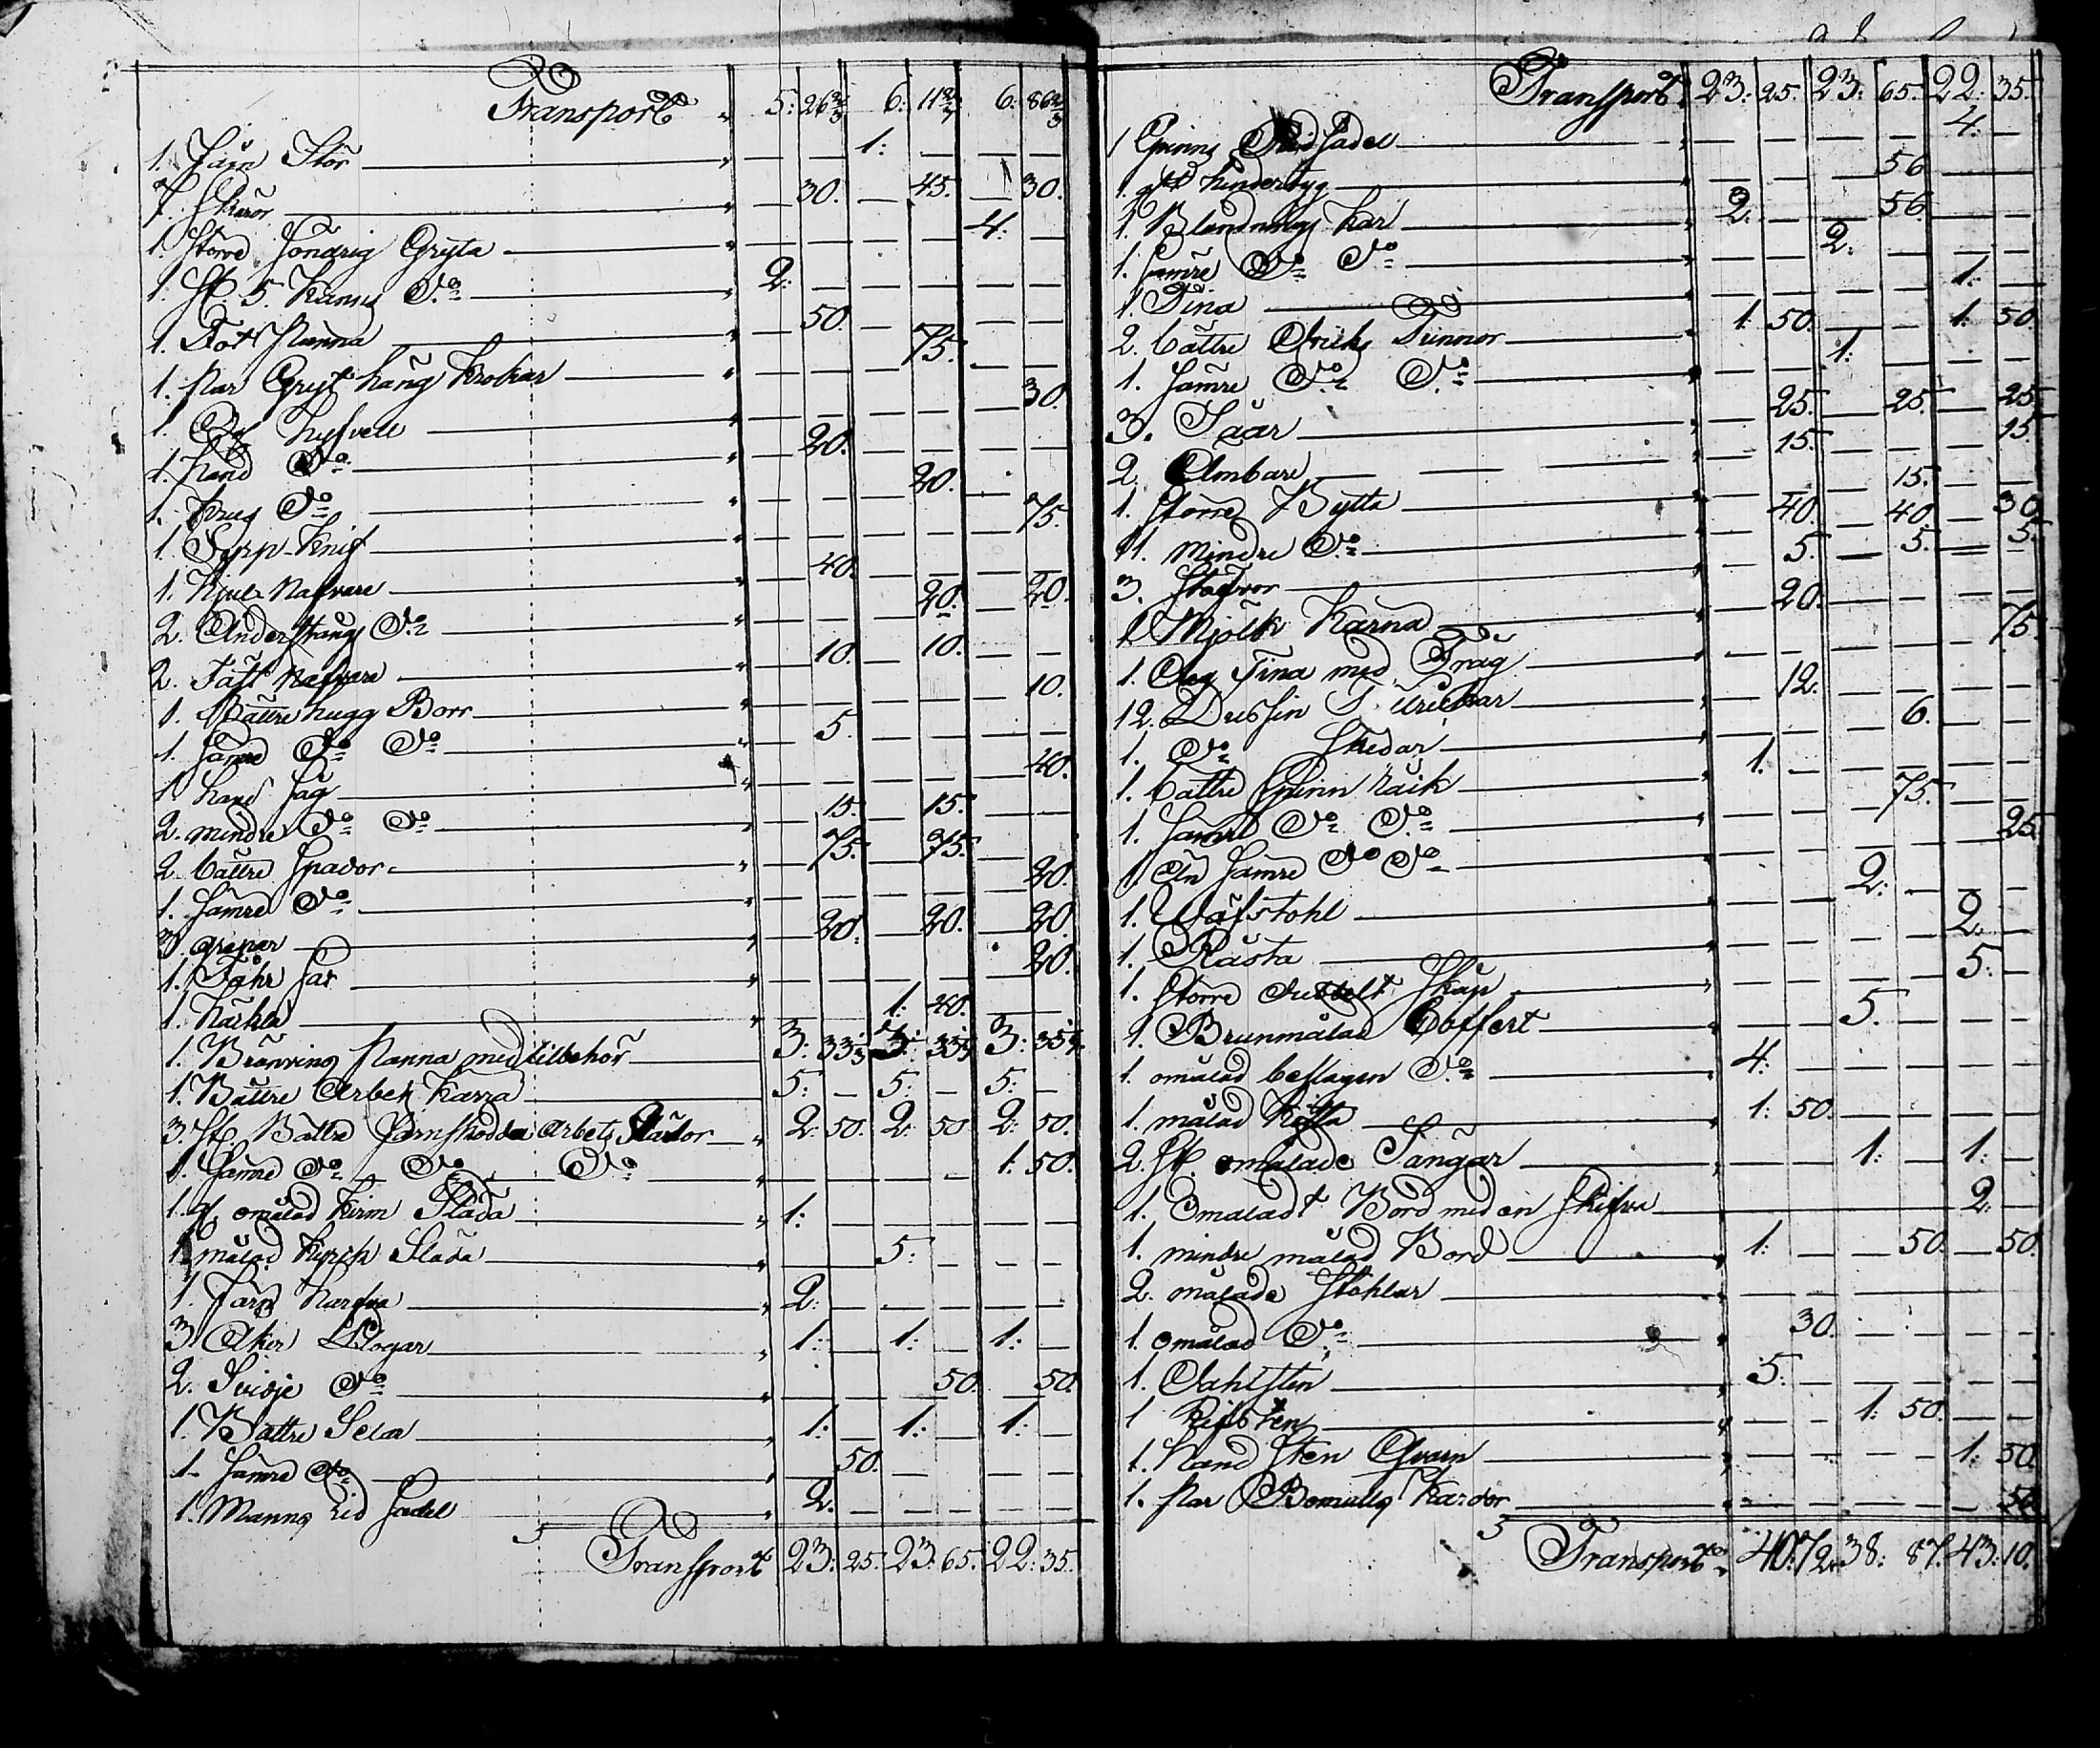 Transport 5: 26 2/3 6: 11 2/3 6: 86 2/3
1. Järn Stör 1:
7. Skäror 30. 45. 30.
1. Större Söndrig Gryta 4:
1. St. 5. Kanns Do 2:
1. Fot Panna 50.
1. Par Gryt häng Krokar 75.
1. Ox hyfvell 30.
1. hand Do 20.
1. krus Do 20.
1. Sepp Knif 75.
1. Hjul Nafvare 40.
2. Anderstangs Do 20. 20.
2. Tätt Nafvare 10. 10.
1. Bättre hugg Borr 10.
1. Sämre Do Do 5.
1. hand Såg 40.
2. mindre Do Do 15. 15.
2. bättre Spador 75. 75.
1. Sämre Do 20.
3. grepar 20. 20. 20.
1. Fåhr Sax 20.
1. Häckla 1: 40.
1. Brännvins Panna med tilbehör 3: 33 1/3 3: 33 1/3 3: 33 1/3
1. Bättre Arbets Kärra 5: 5: 5:
3. St. Bättre Järnskodda arbets Slädor 2: 50. 2: 50 2: 50.
1. Sämre Do Do Do 1: 50.
1. St. omålad Kirm Släda 1:
1. målad Kyrck Släda 5:
1. Järn Harfva 2:
3 Åker Plogar 1: 1: 1:
2. Svidje Do 50. 50.
1. Bättre Sela 1: 1: 1:
1. Sämre Do 50.
1. Manns Rid Sadel 2.
Transport 23: 25. 23: 65. 22: 35.
Transport 23: 25. 23: 65. 22: 35.
1 Qvinns Rid Sadel 4:
1. hindertyg 56
1. Blandnings Kar 2: 56
1. Sämre Do Do 2:
1. Tina 1:
2. bättre Dricks Tunnor 1: 50. 1: 50.
1. Sämre Do Do 1:
3. Såar 25. 25. 25
2. Ämbare 15. 15.
1. Större Bytta 15.
11. Mindre Do 40. 40. 30.
3. Stäfvor 5. 5. 5.
1 Mjölk Kärna 20.
1. Deg Tina med Tråg 75.
12. Dussin Tallrickar 12.
1. Do Skedar 6.
1. bättre Spinn räck 1.
1. Sämre Do Do 75.
1. Än Sämre Do Do 25.
1. Väfstohl 2:
1. Råsta 2.
1. Större dubbelt Skåp 5:
1. Brunmålad Coffert 5.
1. omålad beslagen Do 4.
1. målad Kista 1: 50.
2. St. omålade Sängar 1: 1:
1. Omåladt Bord med en Skifva 2:
1. mindre målad Bord 1: 50. 50.
2. målade Stohlar
1. omålad Do 30.
1. Dahlsten 5.
1 Rifsten 1: 50.
1. Hand Sten Qvarn 1: 50
1. Par Bomulls Kardor 50.
Transport 40: 72. 38: 87. 43: 10.